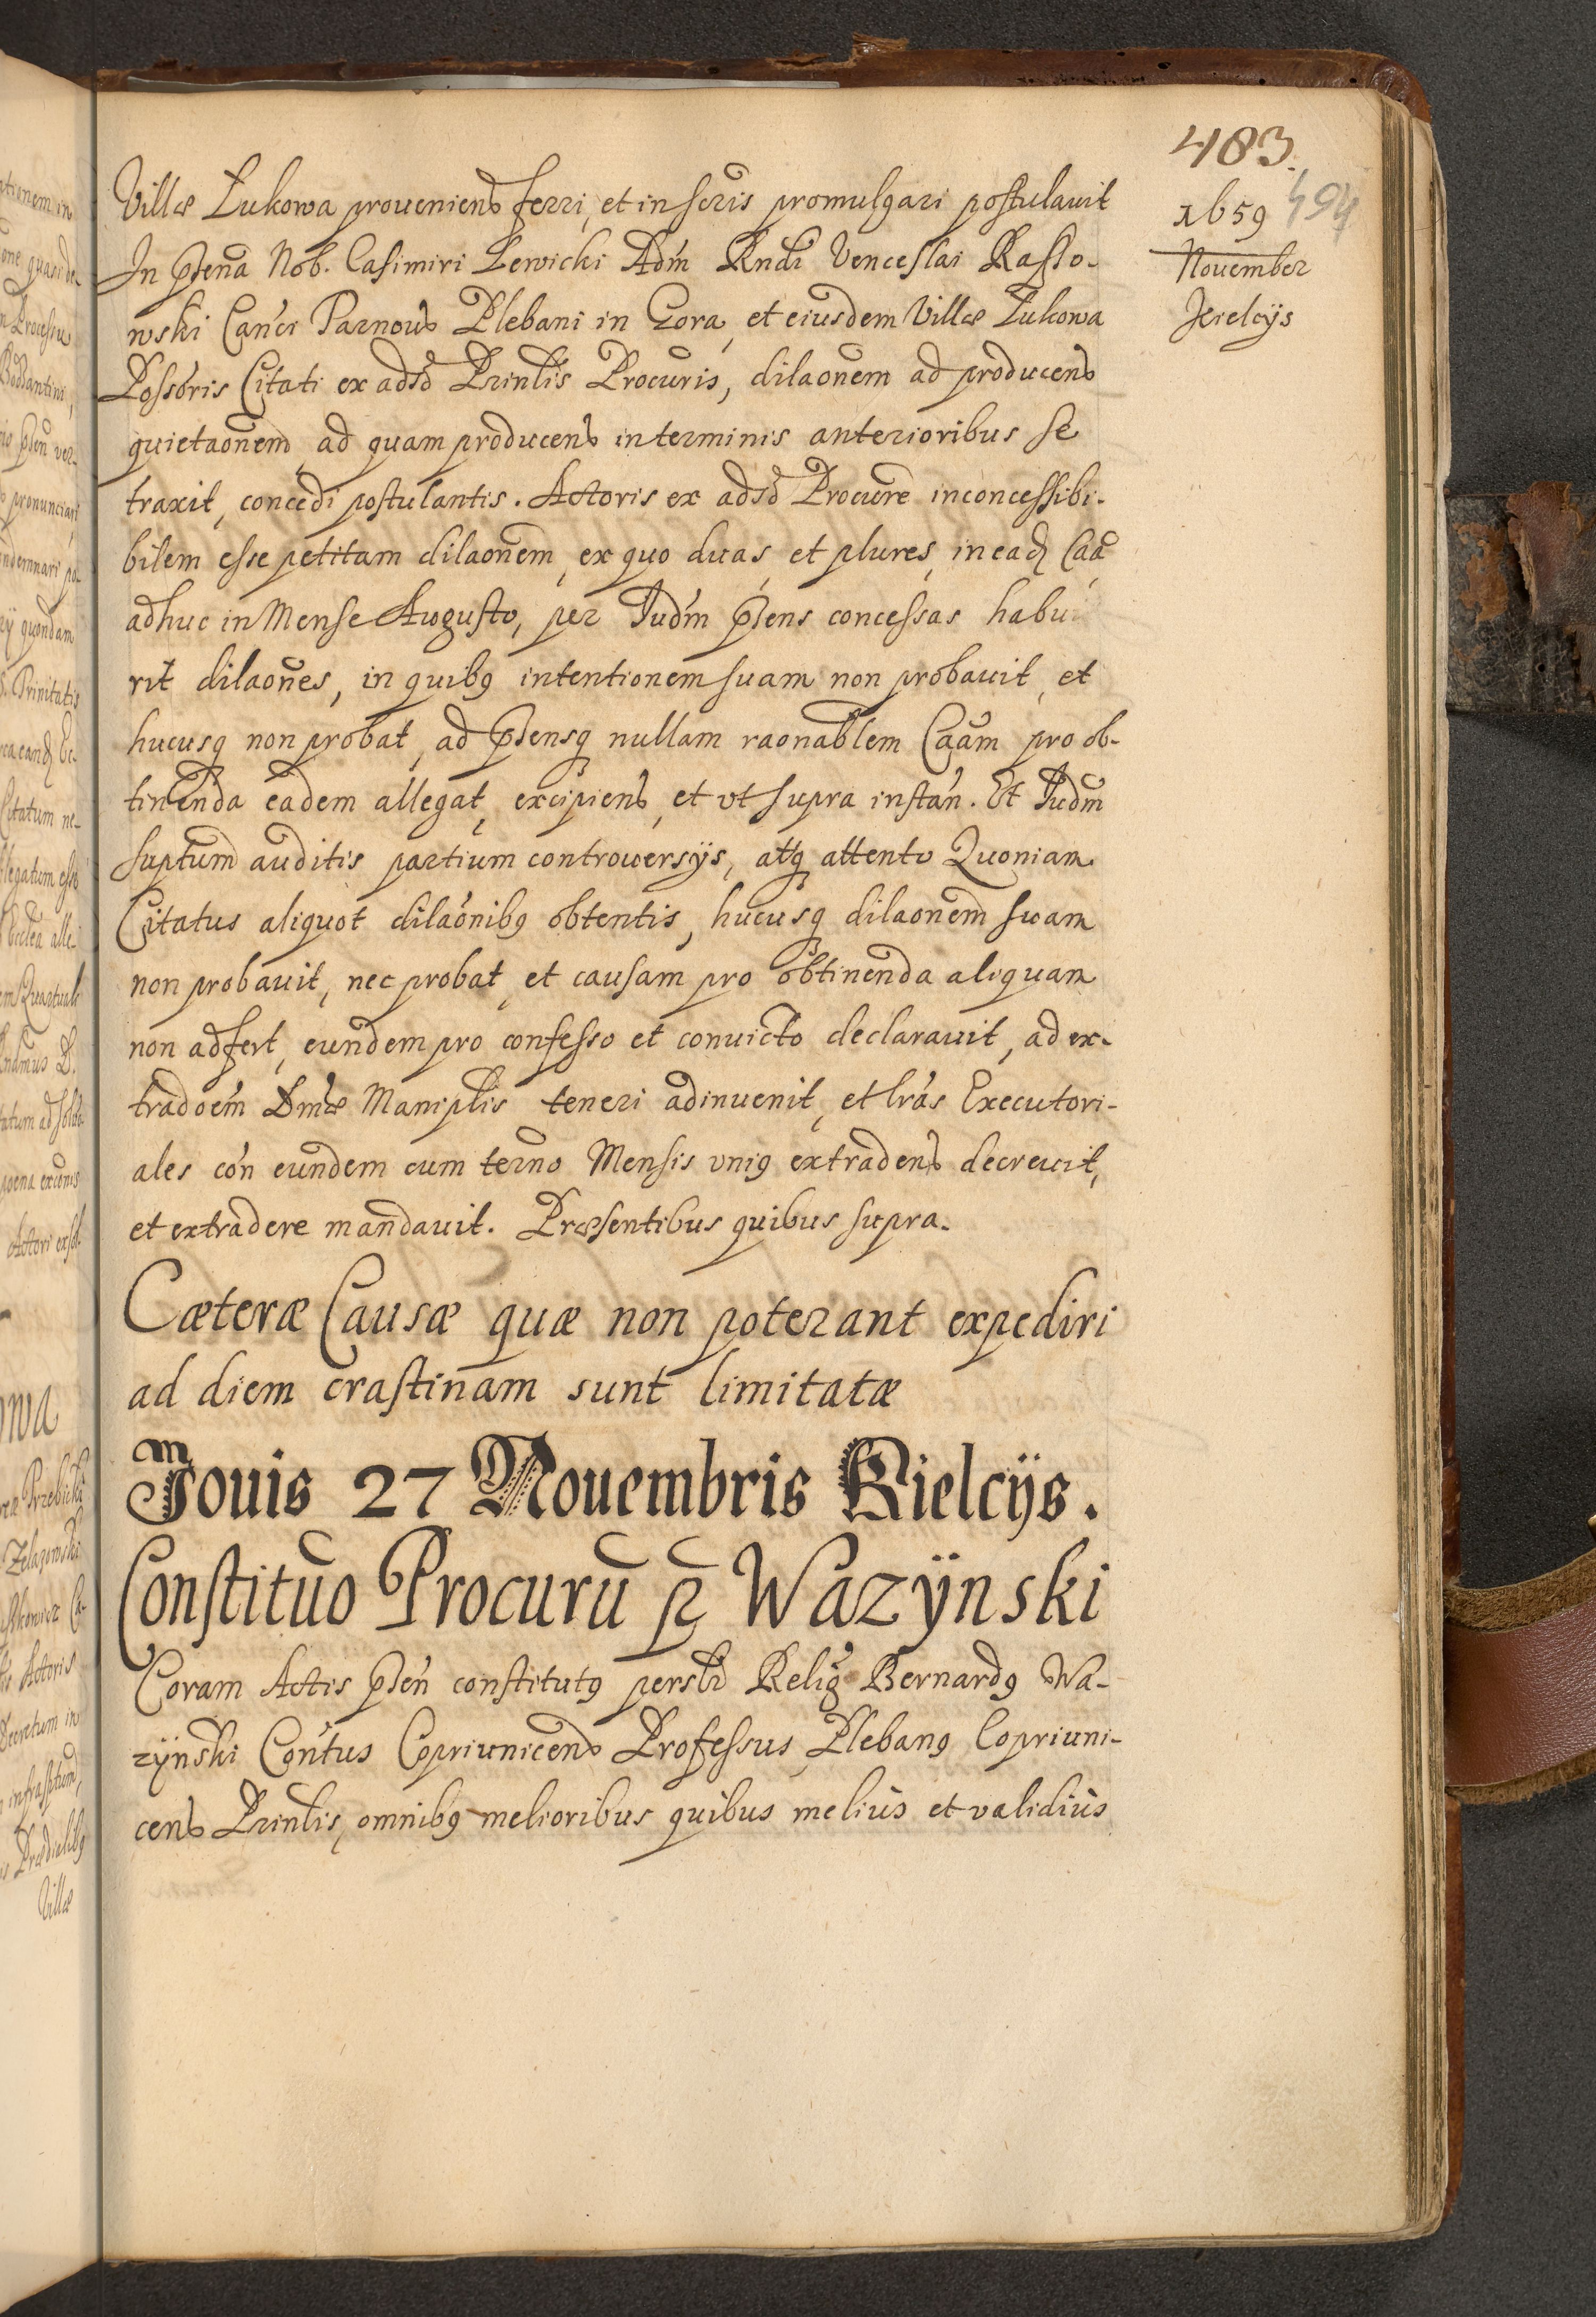 483.
1659 494
November
Kielcijs
Villæ Łukowa prouenienŧ ferri, et in scris promulgari postulauit
In pñtia Nob. Casimiri Lewicki Adm Rndi Venceslai Kasso-
wski Canci Parnouŧ Plebani in Gora, et eiusdem Villæ Łukowa
Possoris Citati ex adso Prinlis Procuris, dilaonem ad producenŧ
quietaonem ad quam producenŧ in terminis anterioribus se
traxit, concedi postulantis. Actoris ex adso Procure inconcessibi-
bilem esse petitam dilaonem, ex quo duas, et plures, in eadꝫ Caa
adhuc in Mense Augusto, per Iudm pñtens concessas habu
rit dilaones, in quibꝯ intentionem suam non probauit, et
hucusqꝫ non probat, ad pñtensqꝫ nullam raonablem Caam pro ob-
tinenda eadem allegat, excipienŧ, et vt supra instan. Et Iudm
suptum auditis partium controuersijs, attqꝫ attento Quoniam
Citatus aliquot dilaonibꝯ obtentis, hucusqꝫ dilaonem suam
non probauit, nec probat, et causam pro obtinenda aliquam
non adfert, eundem pro confesso et conuicto declarauit, ad ex-
tradoem Dmæ Maniplis teneri adinuenit, et lras Executori-
ales con eundem cum termo Mensis vniꝯ extradenŧ decreuit,
et extradere mandauit. Præsentibus quibus supra.
Cæteræ Causæ quæ non poterant expediri
ad diem crastinam sunt limitatæ
Jouis 27 Nouembris Kielcijs.
Constituo Procuru pr Wazÿnski
Coram Actis psen constitutꝯ persłr Relig Bernardꝯ Wa-
zÿnski Contus Copriunicenŧ Professus, Plebanꝯ Copriuni-
cenŧ Prinlis, omnibꝯ melioribus quibus meliùs et validiùs